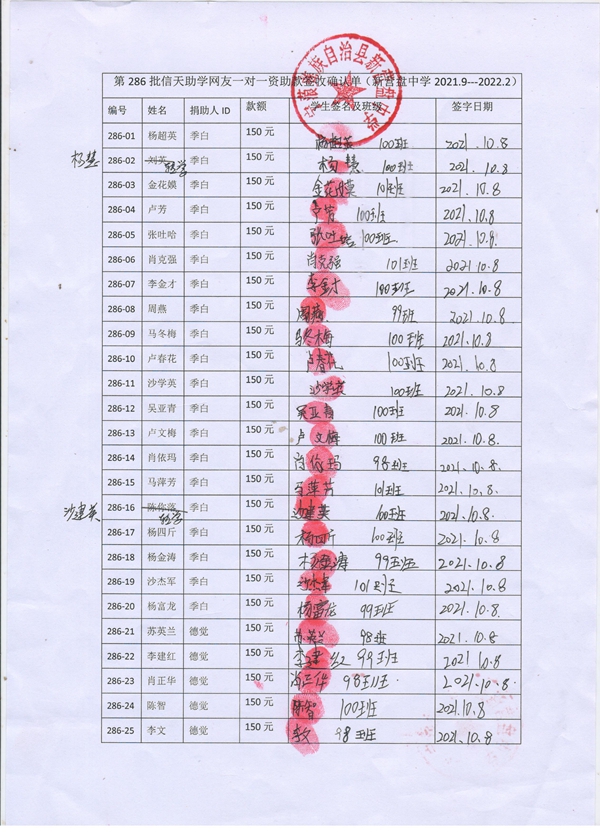 第 286 批信天助学网友一对一资助款签收确认单（新营盘中学 2021.9---2022.2）
编号 姓名 捐助人 ID 款额 学生签名及班级 签字日期
286-01 杨超英 季白 150 元 杨超英 100班 2021.10.8
杨慧 286-02 刘英 季白 150 元 杨慧 100班 2021.10.8
286-03 金花嫫 季白 150 元 金花嫫 101班 2021.10.8
286-04 卢芳 季白 150 元 卢芳 100班 2021.10.8
286-05 张吐哈 季白 150 元 张吐哈 100班 2021.10.8
286-06 肖克强 季白 150 元 肖克强 101班 2021.10.8
286-07 李金才 季白 150 元 李金才 100班 2021.10.8
286-08 周燕 季白 150 元 周燕 99班 2021.10.8
286-09 马冬梅 季白 150 元 马冬梅 100班 2021.10.8
286-10 卢春花 季白 150 元 卢春花 100班 2021.10.8
286-11 沙学英 季白 150 元 沙学英 100班 2021.10.8
286-12 吴亚青 季白 150 元 吴亚青 100班 2021.10.8
286-13 卢文梅 季白 150 元 卢文梅 100班 2021.10.8
286-14 肖依玛 季白 150 元 肖依玛 98班 2021.10.8.
286-15 马萍芳 季白 150 元 马萍芳 101班 2021.10.8.
沙建英 286-16 季白 150 元 沙建英 100班 2021.10.8.
286-17 杨四斤 季白 150 元 杨四斤 100班 2021.10.8
286-18 杨金涛 季白 150 元 杨金涛 99班 2021.10.8
286-19 沙杰军 季白 150 元 沙杰军 101班 2021.10.8
286-20 杨富龙 季白 150 元 杨富龙 99班 2021.10.8
286-21 苏英兰 德觉 150 元 苏英兰 98班 2021.10.8
286-22 李建红 德觉 150 元 李建红 99班 2021 10.8
286-23 肖正华 德觉 150 元 肖正华 98班 2021.10.8
286-24 陈智 德觉 150 元 陈智 100班 2021.10.8
286-25 李文 德觉 150 元 李文 98班 2021.10.8